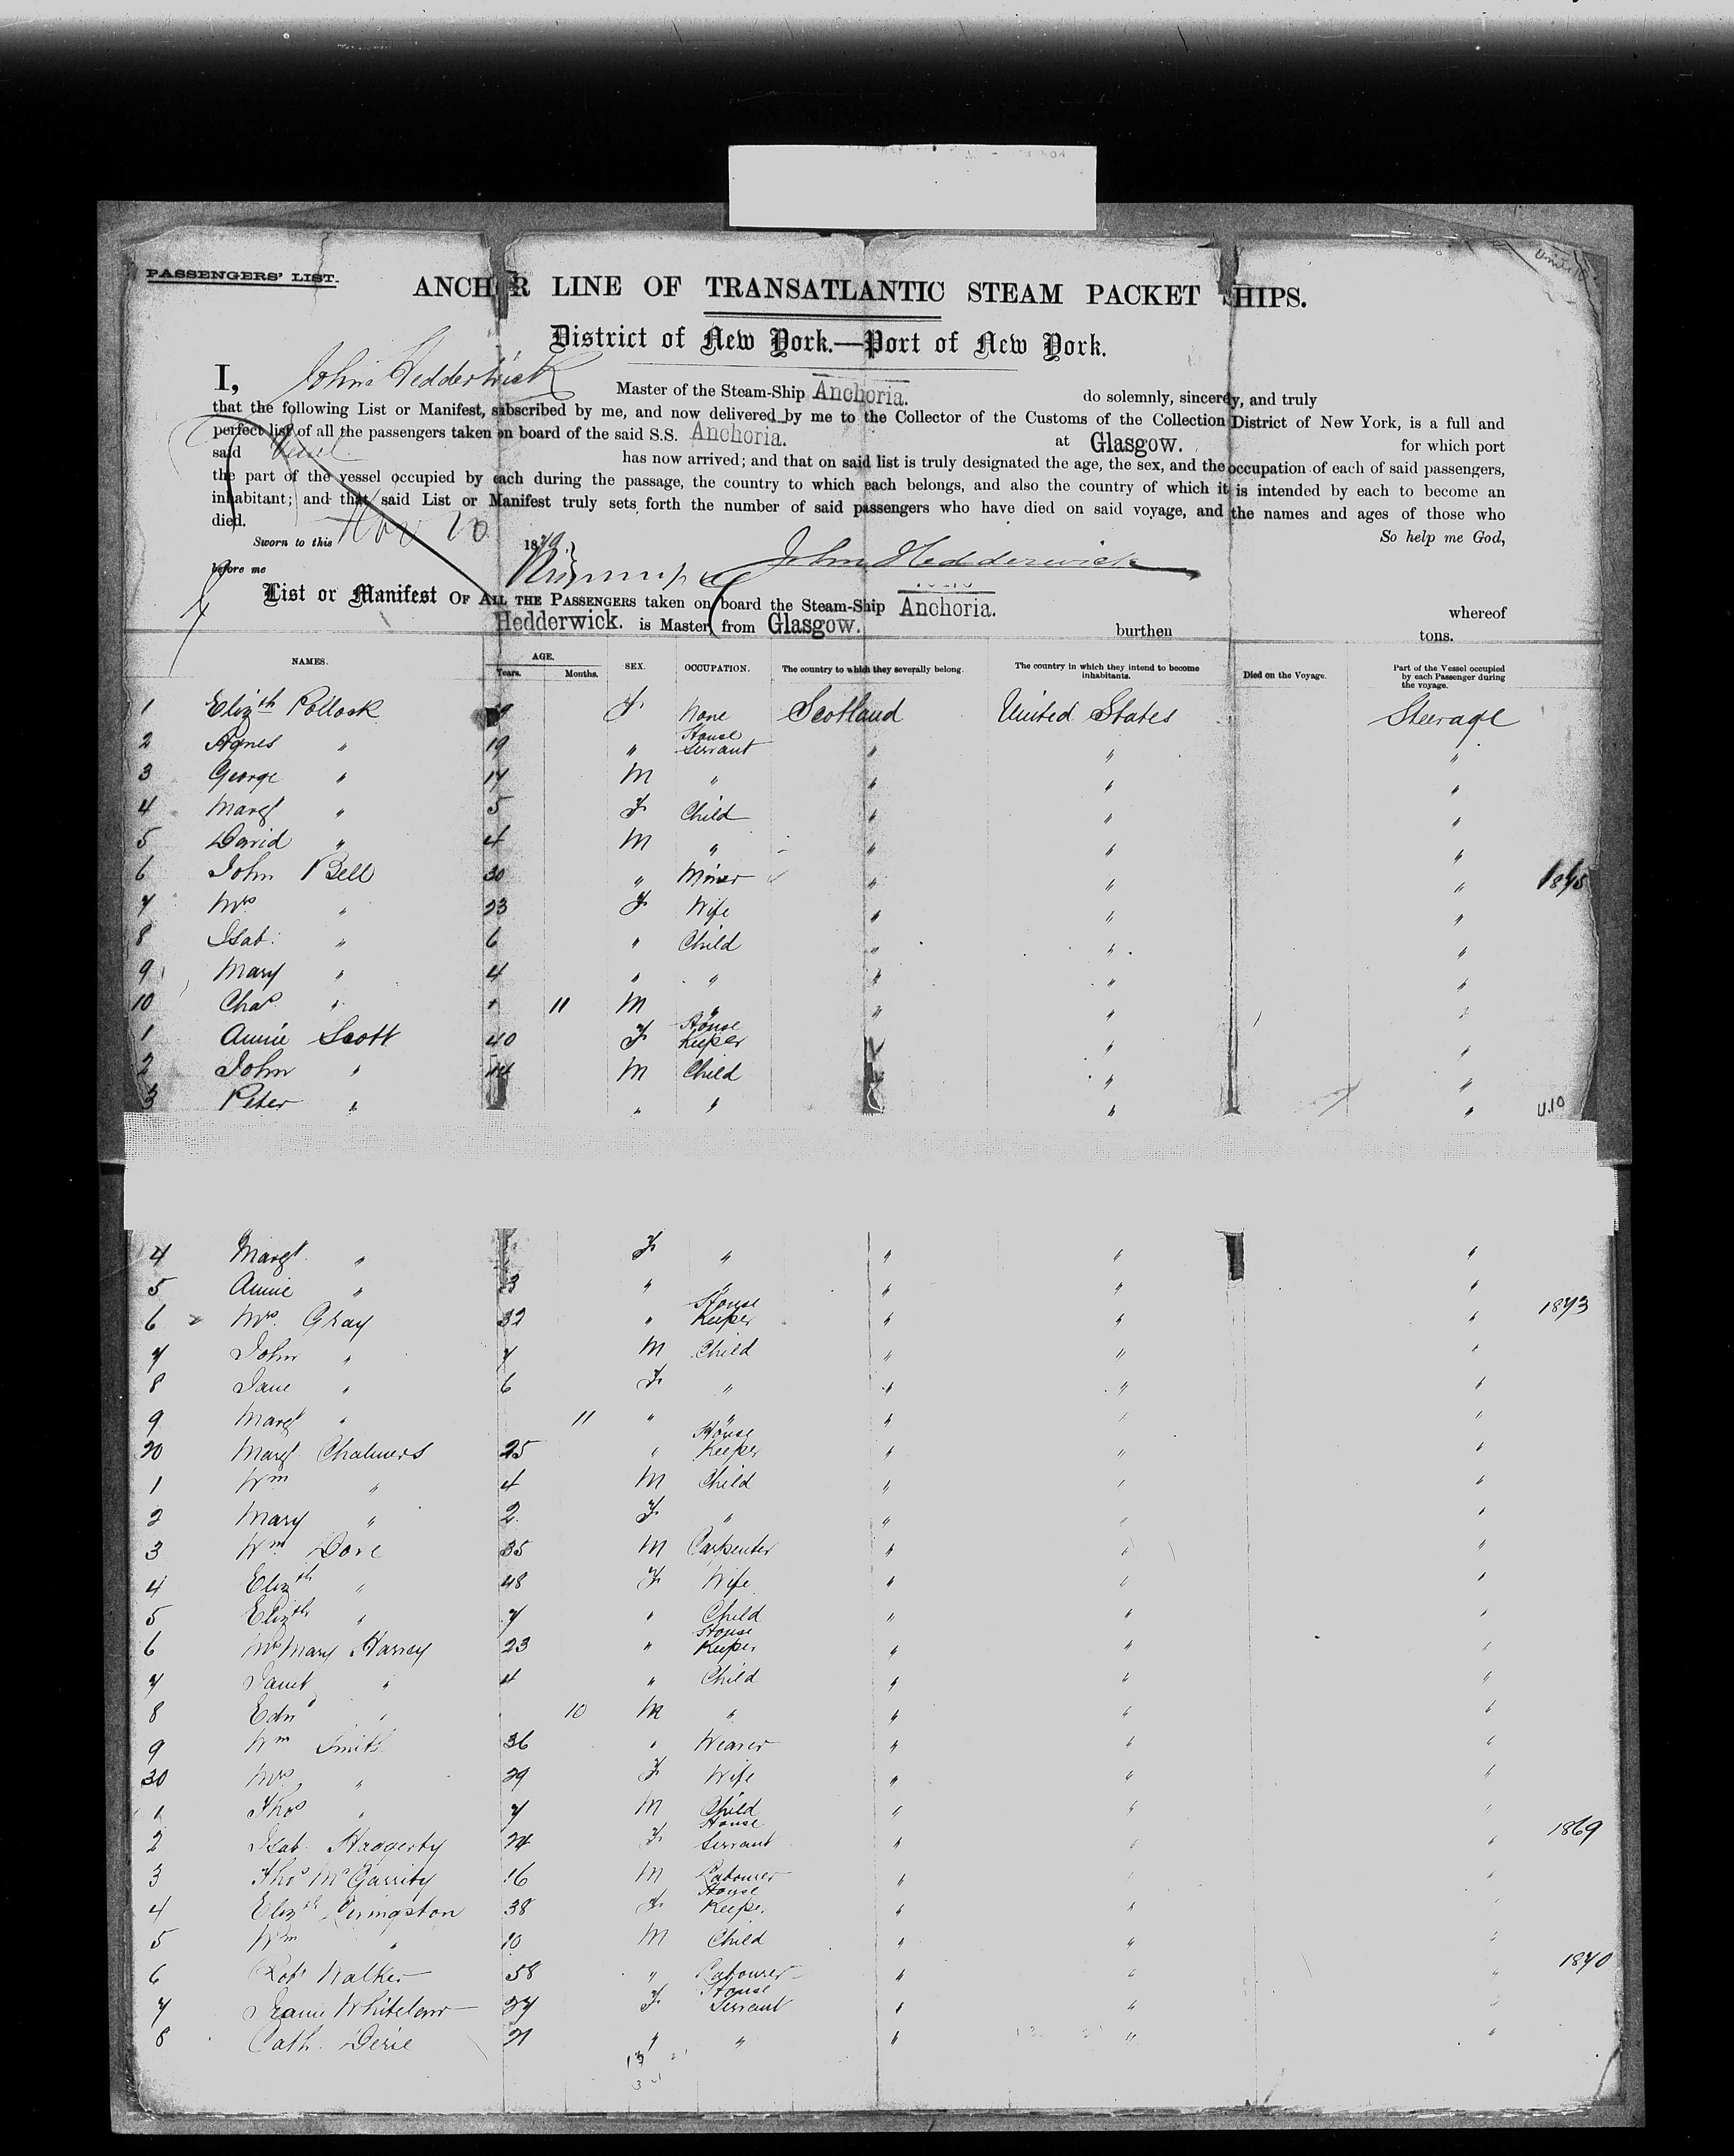 PASSENGERS' LIST.
ANCHOR LINE OF TRANSATLANTIC STEAM PACKET SHIPS.
District of New York.—Port of New York.
I, John Hedderwick Master of the Steam-Ship Anchoria. do solemnly, sincerely, and truly
that the following List or Manifest, subscribed by me, and now delivered by me to the Collector of the Customs of the Collection District of New York, is a full and
perfect list of all the passengers taken on board of the said S.S. Anchoria. at Glasgow. for which port
said has now arrived; and that on said list is truly designated the age, the sex, and the occupation of each of said passengers,
the part of the vessel occupied by each during the passage, the country to which each belongs, and also the country of which it is intended by each to become an
inhabitant; and that said List or Manifest truly sets forth the number of said passengers who have died on said voyage, and the names and ages of those who
died. So help me God,
Sworn to this Nov 10 1879.
before me John Hedderwick
List or Manifest OF ALL THE PASSENGERS taken on board the Steam-Ship Anchoria. whereof
Hedderwick. is Master, from Glasgow. burthen tons.
NAMES. AGE. Years. Months. SEX. OCCUPATION. The country to which they severally belong. The country in which they intend to become inhabitants. Died on the Voyage. Part of the Vessel occupied by each Passenger during the voyage.
1 Elizth Pollock F None Scotland United States Steerage
2 Agnes " 19 " House Servant " " "
3 George " 17 M " " " "
4 Margt " 5 F Child " " "
5 David " 4 M " " " "
6 John Bell 30 " Miner " " "
7 Mrs " 23 F Wife " " "
8 Isab: " 6 " Child " " "
9 Mary " 4 " " " " "
10 Chas " 11 M " " " "
1 Annie Scott 40 F House Keeper " "
2 John " 14 M Child " "
3 Peter " " " " " 4.10
4 Margt " F " " " "
5 Annie " 3 " " " " "
6 Mrs. Gray 32 " House Keeper " " " 1873
7 John " 7 M Child " " "
8 Jane " 6 F " " " "
9 Margt " 11 " " " " "
20 Margt Chalmers 25 " House Keeper " " "
1 Wm " 4 M Child " " "
2 Mary " 2 F " " " "
3 Wm Dove 35 M Carpenter " " "
4 Elizth " 48 F Wife " " "
5 Elizth " 7 " Child " " "
6 Mrs Mary Harvey 23 " House Keeper " " "
7 Janet " 4 " Child " " "
8 Edwd " 10 M " " " "
9 Wm Smith 36 " Weaver " " "
30 Mrs " 29 F Wife " " "
1 Thos " 7 M Child " " "
2 Isab. Haggerty 24 F House Servant " " " 1869
3 Thos McGarrity 16 M Labourer " " "
4 Elizth Livingston 38 F House Keeper " " "
5 Wm " 10 M Child " " "
6 Robt Walker 58 " Labourer " " " 1870
7 Jeanie Whitelaw 27 F House Servant " " "
8 Cath. 21 " " " " "